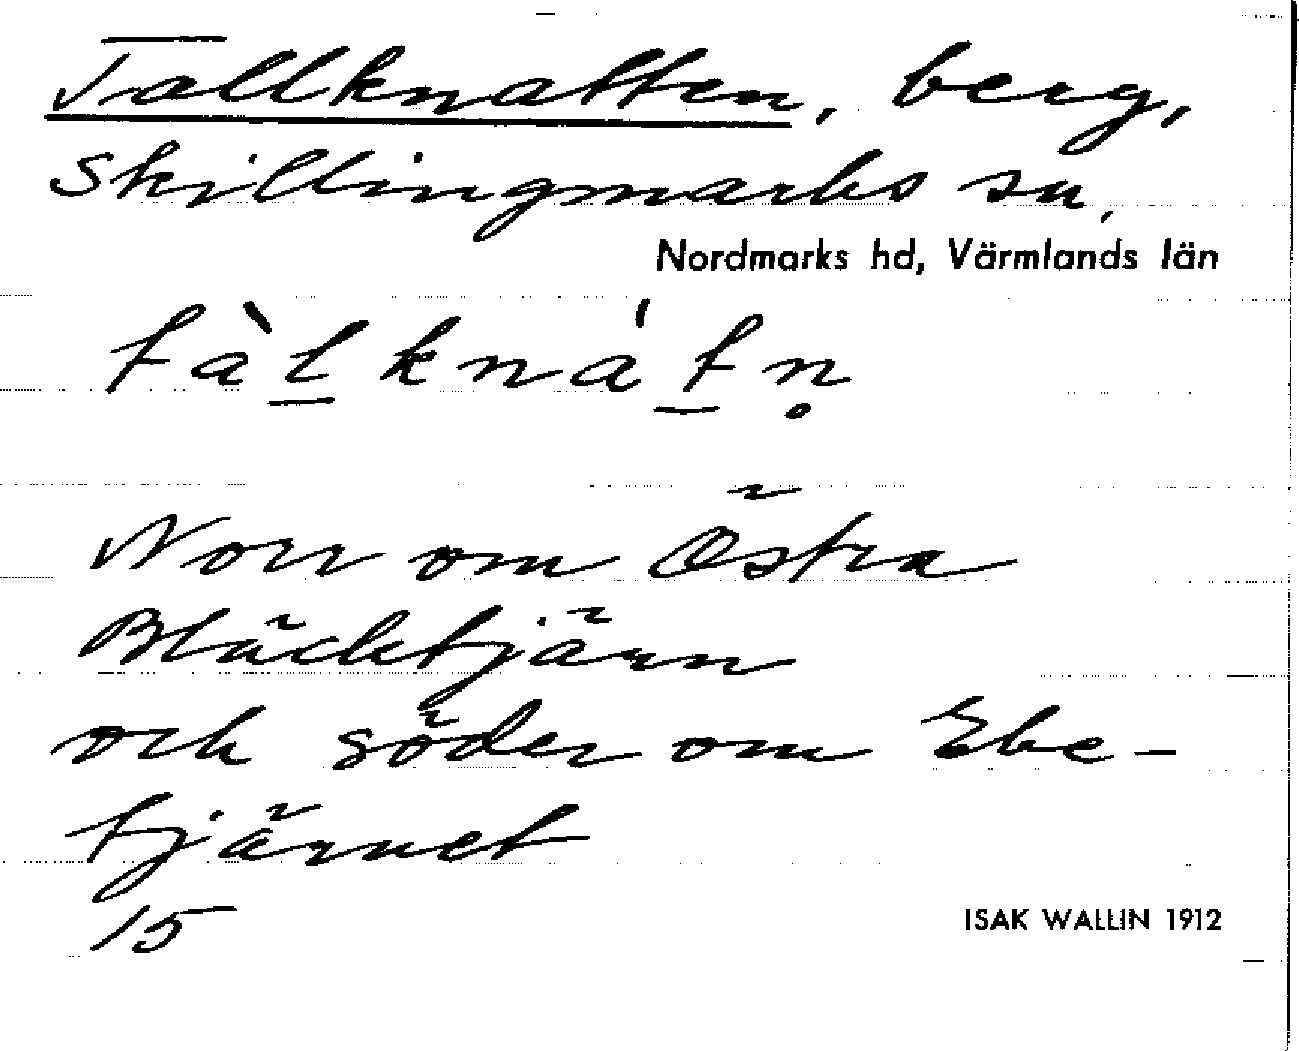 Tallknatten, berg,
Skillingmarks sn,
Nordmarks hd, Värmlands län
tàl̲knát̲n̥
Norr om Östra
Bläcktjärn
och söder om Ebe-
tjärnet
15
ISAK WALLIN 1912